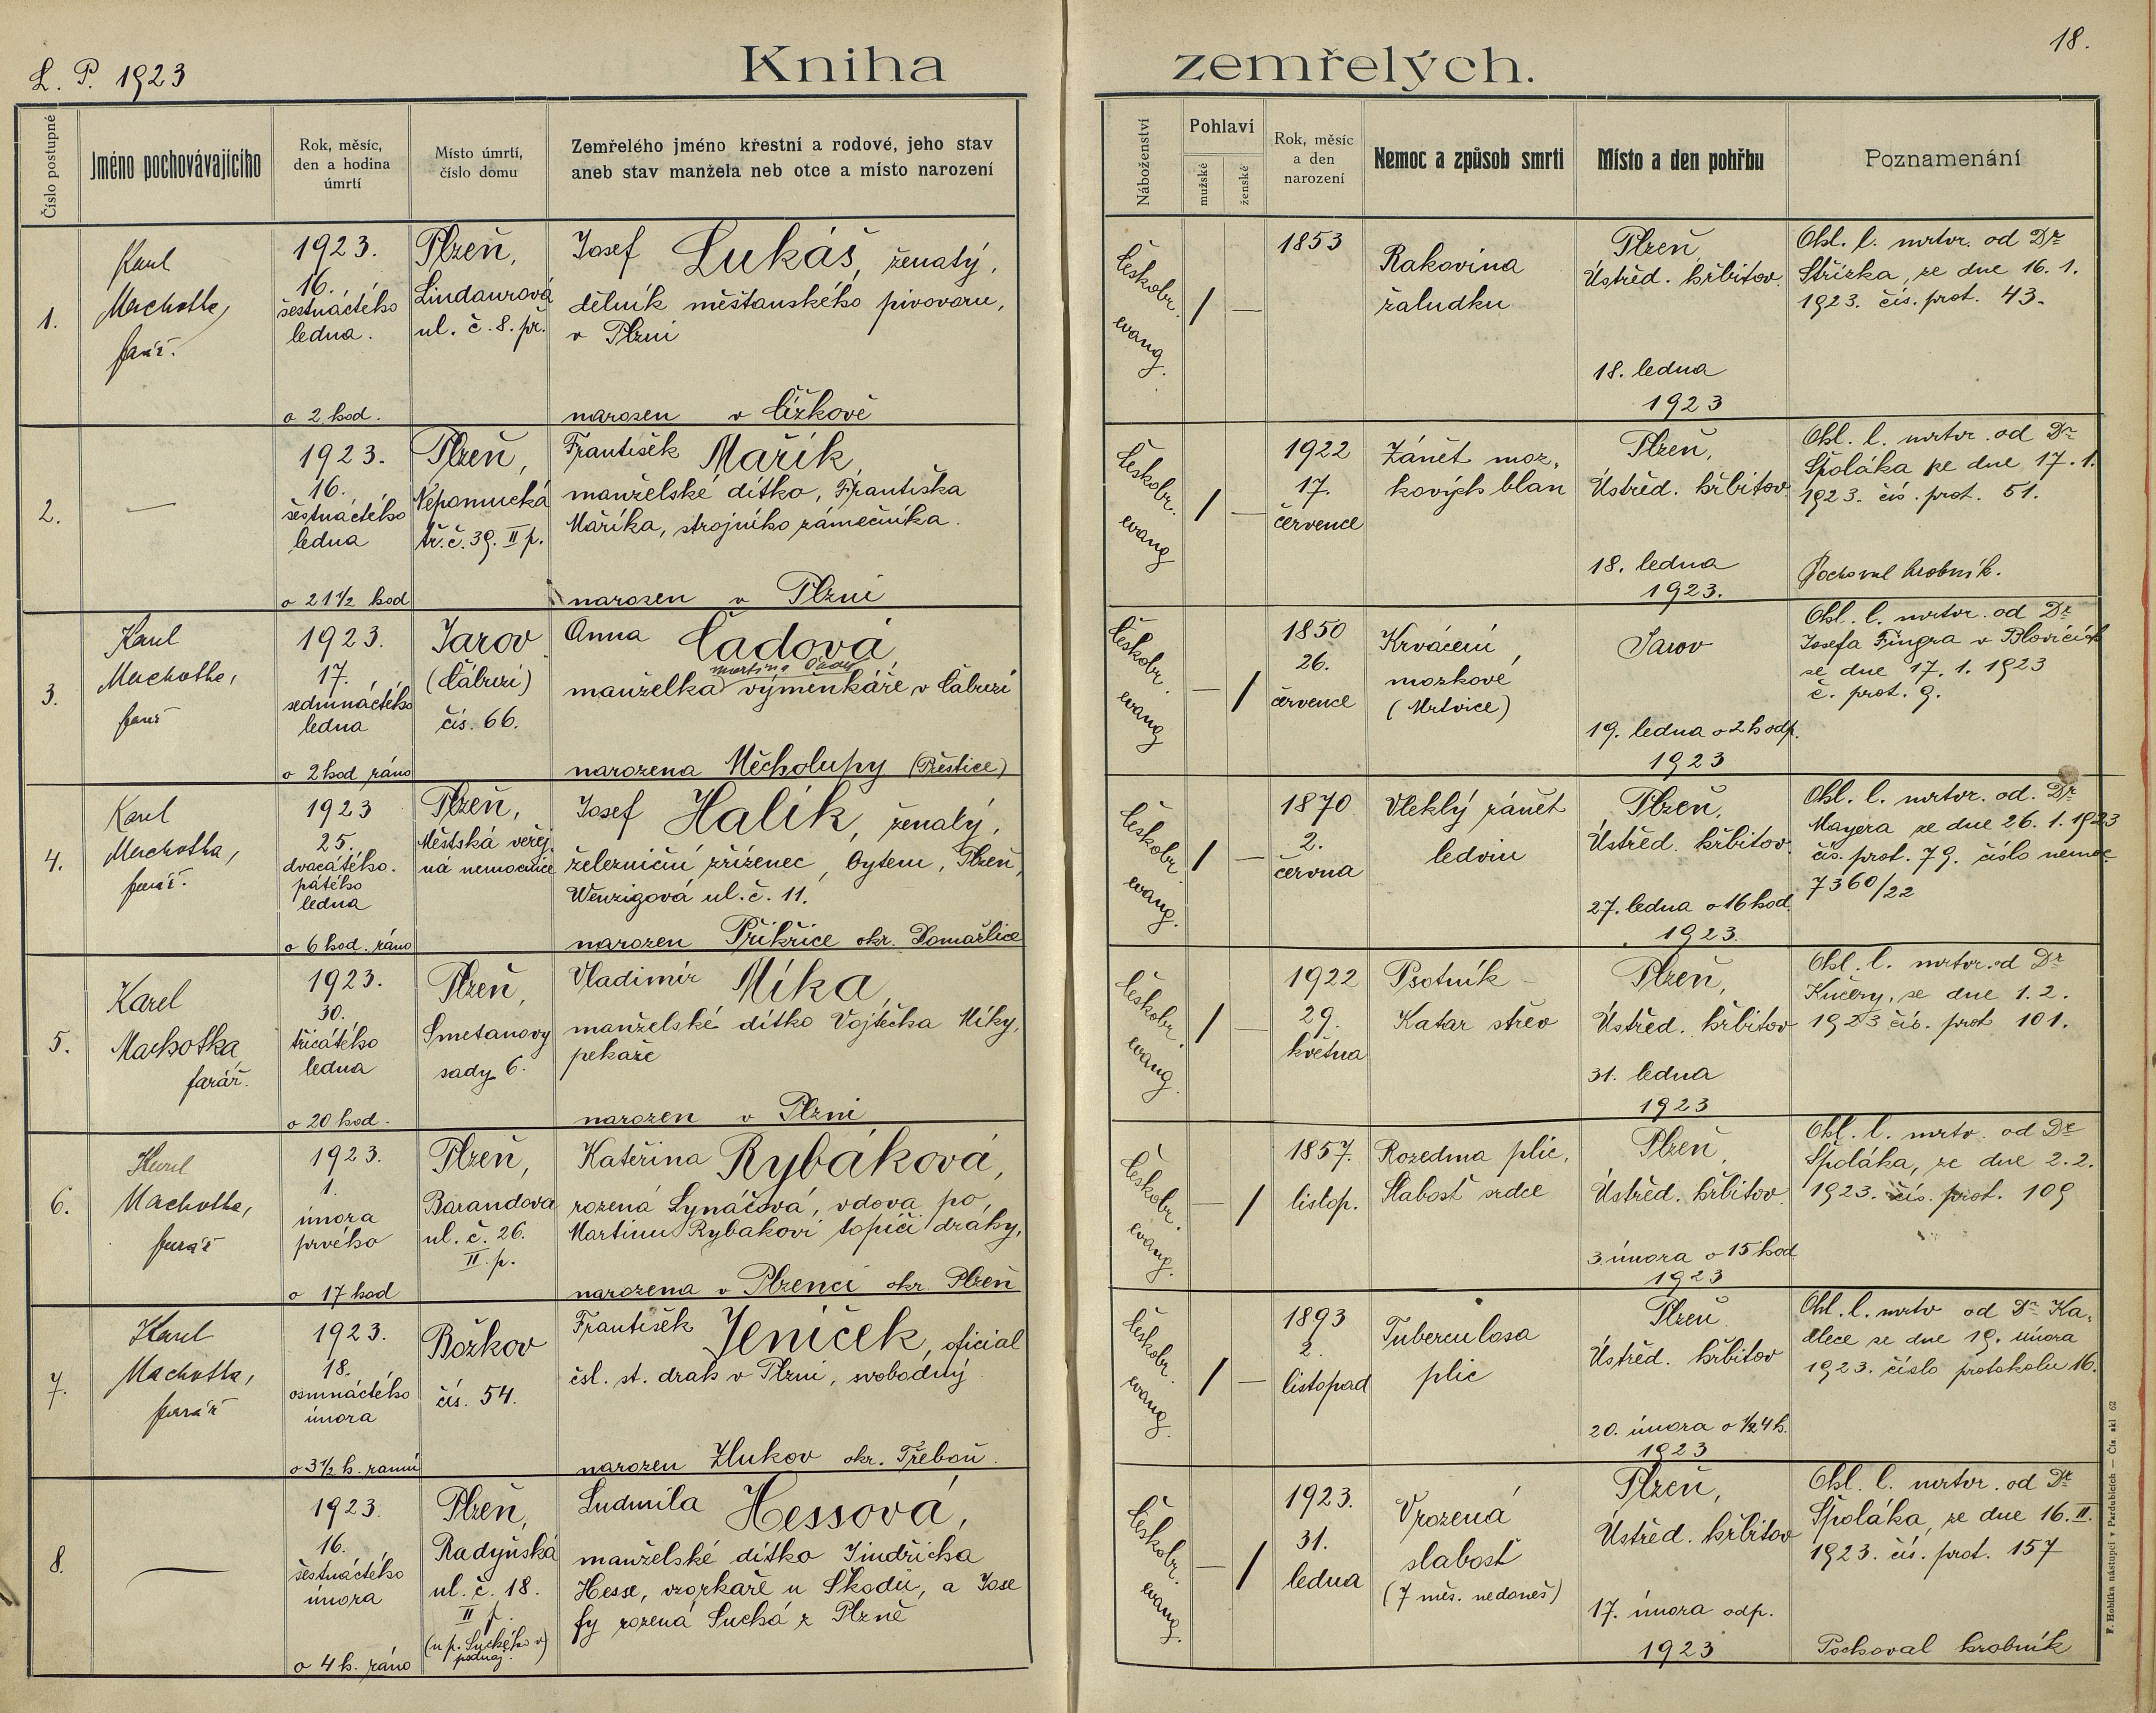 L. P. 1923
Kniha zemřelých.
18.
Číslo postupné
Jméno pochovávajícího
Rok, měsíc,
den a hodina
úmrtí
Místo úmrtí,
číslo domu
Zemřelého jméno křestní a rodové, jeho stav
aneb stav manžela neb otce a místo narození
Náboženství
Pohlaví
mužské
ženské
Rok, měsíc
a den
narození
Nemoc a způsob smrti
Místo a den pohřbu
Poznamenání
1.
Karel
Machotka,
farář.
1923.
16.
šestnáctého
ledna.
o 2 hod.
Plzeň,
Lindaurová
ul. č. 8. př.
Josef Lukáš, ženatý,
dělník měšťanského pivovaru,
v Plzni
narozen v Čížkově
Českobr.
evang.
/ —
1853
Rakovina
žaludku
Plzeň,
Ústřed. hřbitov.
18. ledna
1923
Ohl. l. mrtvr. od Dr
Střízka, ze dne 16. 1.
1923. čís. prot. 43.
2.
—
1923.
16.
šestnáctého
ledna
o 21 1/2 hod
Plzeň,
Nepomucká
tř. č. 39. II p.
František Mařík,
manželské dítko, Františka
Maříka, strojního zámečníka.
narozen v Plzni
Českobr.
evang
/ —
1922
17.
července
Zánět moz,
kových blan
Plzeň,
Ústřed. hřbitov
18. ledna
1923.
Ohl. l. mrtvr. od Dr
Špoláka ze dne 17. 1.
1923. čís. prot. 51.
Pochoval hrobník.
3.
Karel
Machotka,
farář
1923.
17.
sedmnáctého
ledna
o 2 hod ráno
Jarov
(Cábuzí)
čís. 66.
Anna Čadová,
Martina Čady
manželka výměnkáře, v Cábuzí
narozena Měcholupy (Přeštice)
Českobr.
evang
— /
1850
26.
července
Krvácení
mozkové
(Mrtvice)
Jarov
19. ledna o 2 h odp.
1923
Ohl. l. mrtvr. od Dr
Josefa Fingra v Blovicích
ze dne 17. 1. 1923
č. prot. 9.
4.
Karel
Machotka,
farář.
1923
25.
dvacátého.
pátého
ledna
o 6 hod. ráno
Plzeň,
Městská veřej
ná nemocnice
Josef Halík, ženatý,
železniční zřízenec, bytem, Plzeň,
Wenzigová ul. č. 11.
narozen Přikřice okr. Domažlice
Českobr.
evang.
/ —
1870
2.
června
Vleklý zánět
ledvin
Plzeň,
Ústřed. hřbitov.
27. ledna o 16 hod.
1923.
Ohl. l. mrtvr. od. Dr
Mayera ze dne 26. 1. 1923
čís. prot. 79. číslo nemoc
7360/22
5.
Karel
Machotka,
farář.
1923.
30.
třicátého
ledna
o 20 hod.
Plzeň,
Smetanovy
sady 6.
Vladimír Míka,
manželské dítko Vojtěcha Míky,
pekaře
narozen v Plzni
Českobr.
evang.
/ —
1922
29.
května
Psotník –
Katar střev
Plzeň,
Ústřed. hřbitov
31. ledna
1923
Ohl. l. mrtvr. od Dr
Kučery, ze dne 1. 2.
1923 čís. prot 101.
6.
Karel
Machotka,
farář
1923.
1.
února
prvého
o 17 hod
Plzeň,
Barandova
ul. č. 26.
II. p.
Kateřina Rybáková,
rozená Lynáčová, vdova po,
Martinu Rybákovi topiči dráhy,
narozena v Plzenci okr. Plzeň
Českobr.
evang.
— /
1857.
listop.
Rozedma plic,
Slabost srdce
Plzeň,
Ústřed. hřbitov.
3. února o 15 hod
1923
Ohl. l. mrtv. od Dr
Špoláka, ze dne 2. 2.
1923. čís. prot. 109
7.
Karel
Machotka,
farář
1923.
18.
osmnáctého
února
o 3 1/2 h. ranní
Božkov
čís. 54.
František Jeníček, oficial
čsl. st. drah v Plzni, svobodný
narozen Zlukov okr. Třeboň.
Českobr.
evang.
/ —
1893
2.
listopad
Tuberculosa
plic
Plzeň.
Ústřed. hřbitov
20. února o 1/2 4 h.
1923
Ohl. l. mrtv od Dr Ka,
dlece ze dne 19. února
1923. číslo protokolu 16.
8.
—
1923.
16.
šestnáctého
února
o 4 h. ráno
Plzeň,
Radyňská
ul. č. 18.
II p.
(u p. Suchého v)
podnáj.
Ludmila Hessová,
manželské dítko Jindřicha
Hesse, vzorkaře u Škodů, a Jose
fy rozená Suchá z Plzně
Českobr.
evang.
— /
1923.
31.
ledna
Vrozená
slabost
(7 měs. nedoneš)
Plzeň,
Ústřed. hřbitov
17. února odp.
1923
Ohl. l. mrtvr. od Dr
Špoláka, ze dne 16. II.
1923. čís. prot. 157
Pochoval hrobník
F. Hoblíka nástupci v Pardubicích — Čís. skl. 62